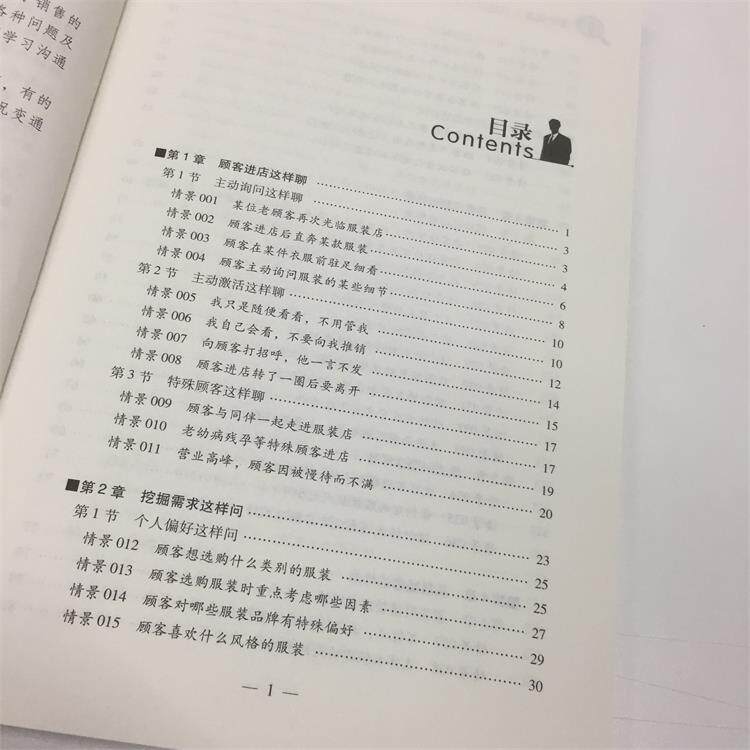 销售的
各种问题及
学习沟通
，有的
况变通
目录
Contents
■第1章 顾客进店这样聊 …… 1
第1节 主动询问这样聊 …… 3
情景001 某位老顾客再次光临服装店 …… 3
情景002 顾客进店后直奔某款服装 …… 4
情景003 顾客在某件衣服前驻足细看 …… 6
情景004 顾客主动询问服装的某些细节 …… 8
第2节 主动激活这样聊 …… 10
情景005 我只是随便看看，不用管我 …… 10
情景006 我自己会看，不要向我推销 …… 12
情景007 向顾客打招呼，他一言不发 …… 14
情景008 顾客进店转了一圈后要离开 …… 15
第3节 特殊顾客这样聊 …… 17
情景009 顾客与同伴一起走进服装店 …… 17
情景010 老幼病残孕等特殊顾客进店 …… 19
情景011 营业高峰，顾客因被慢待而不满 …… 20
■第2章 挖掘需求这样问 …… 23
第1节 个人偏好这样问 …… 25
情景012 顾客想选购什么类别的服装 …… 25
情景013 顾客选购服装时重点考虑哪些因素 …… 27
情景014 顾客对哪些服装品牌有特殊偏好 …… 29
情景015 顾客喜欢什么风格的服装 …… 30
— 1 —